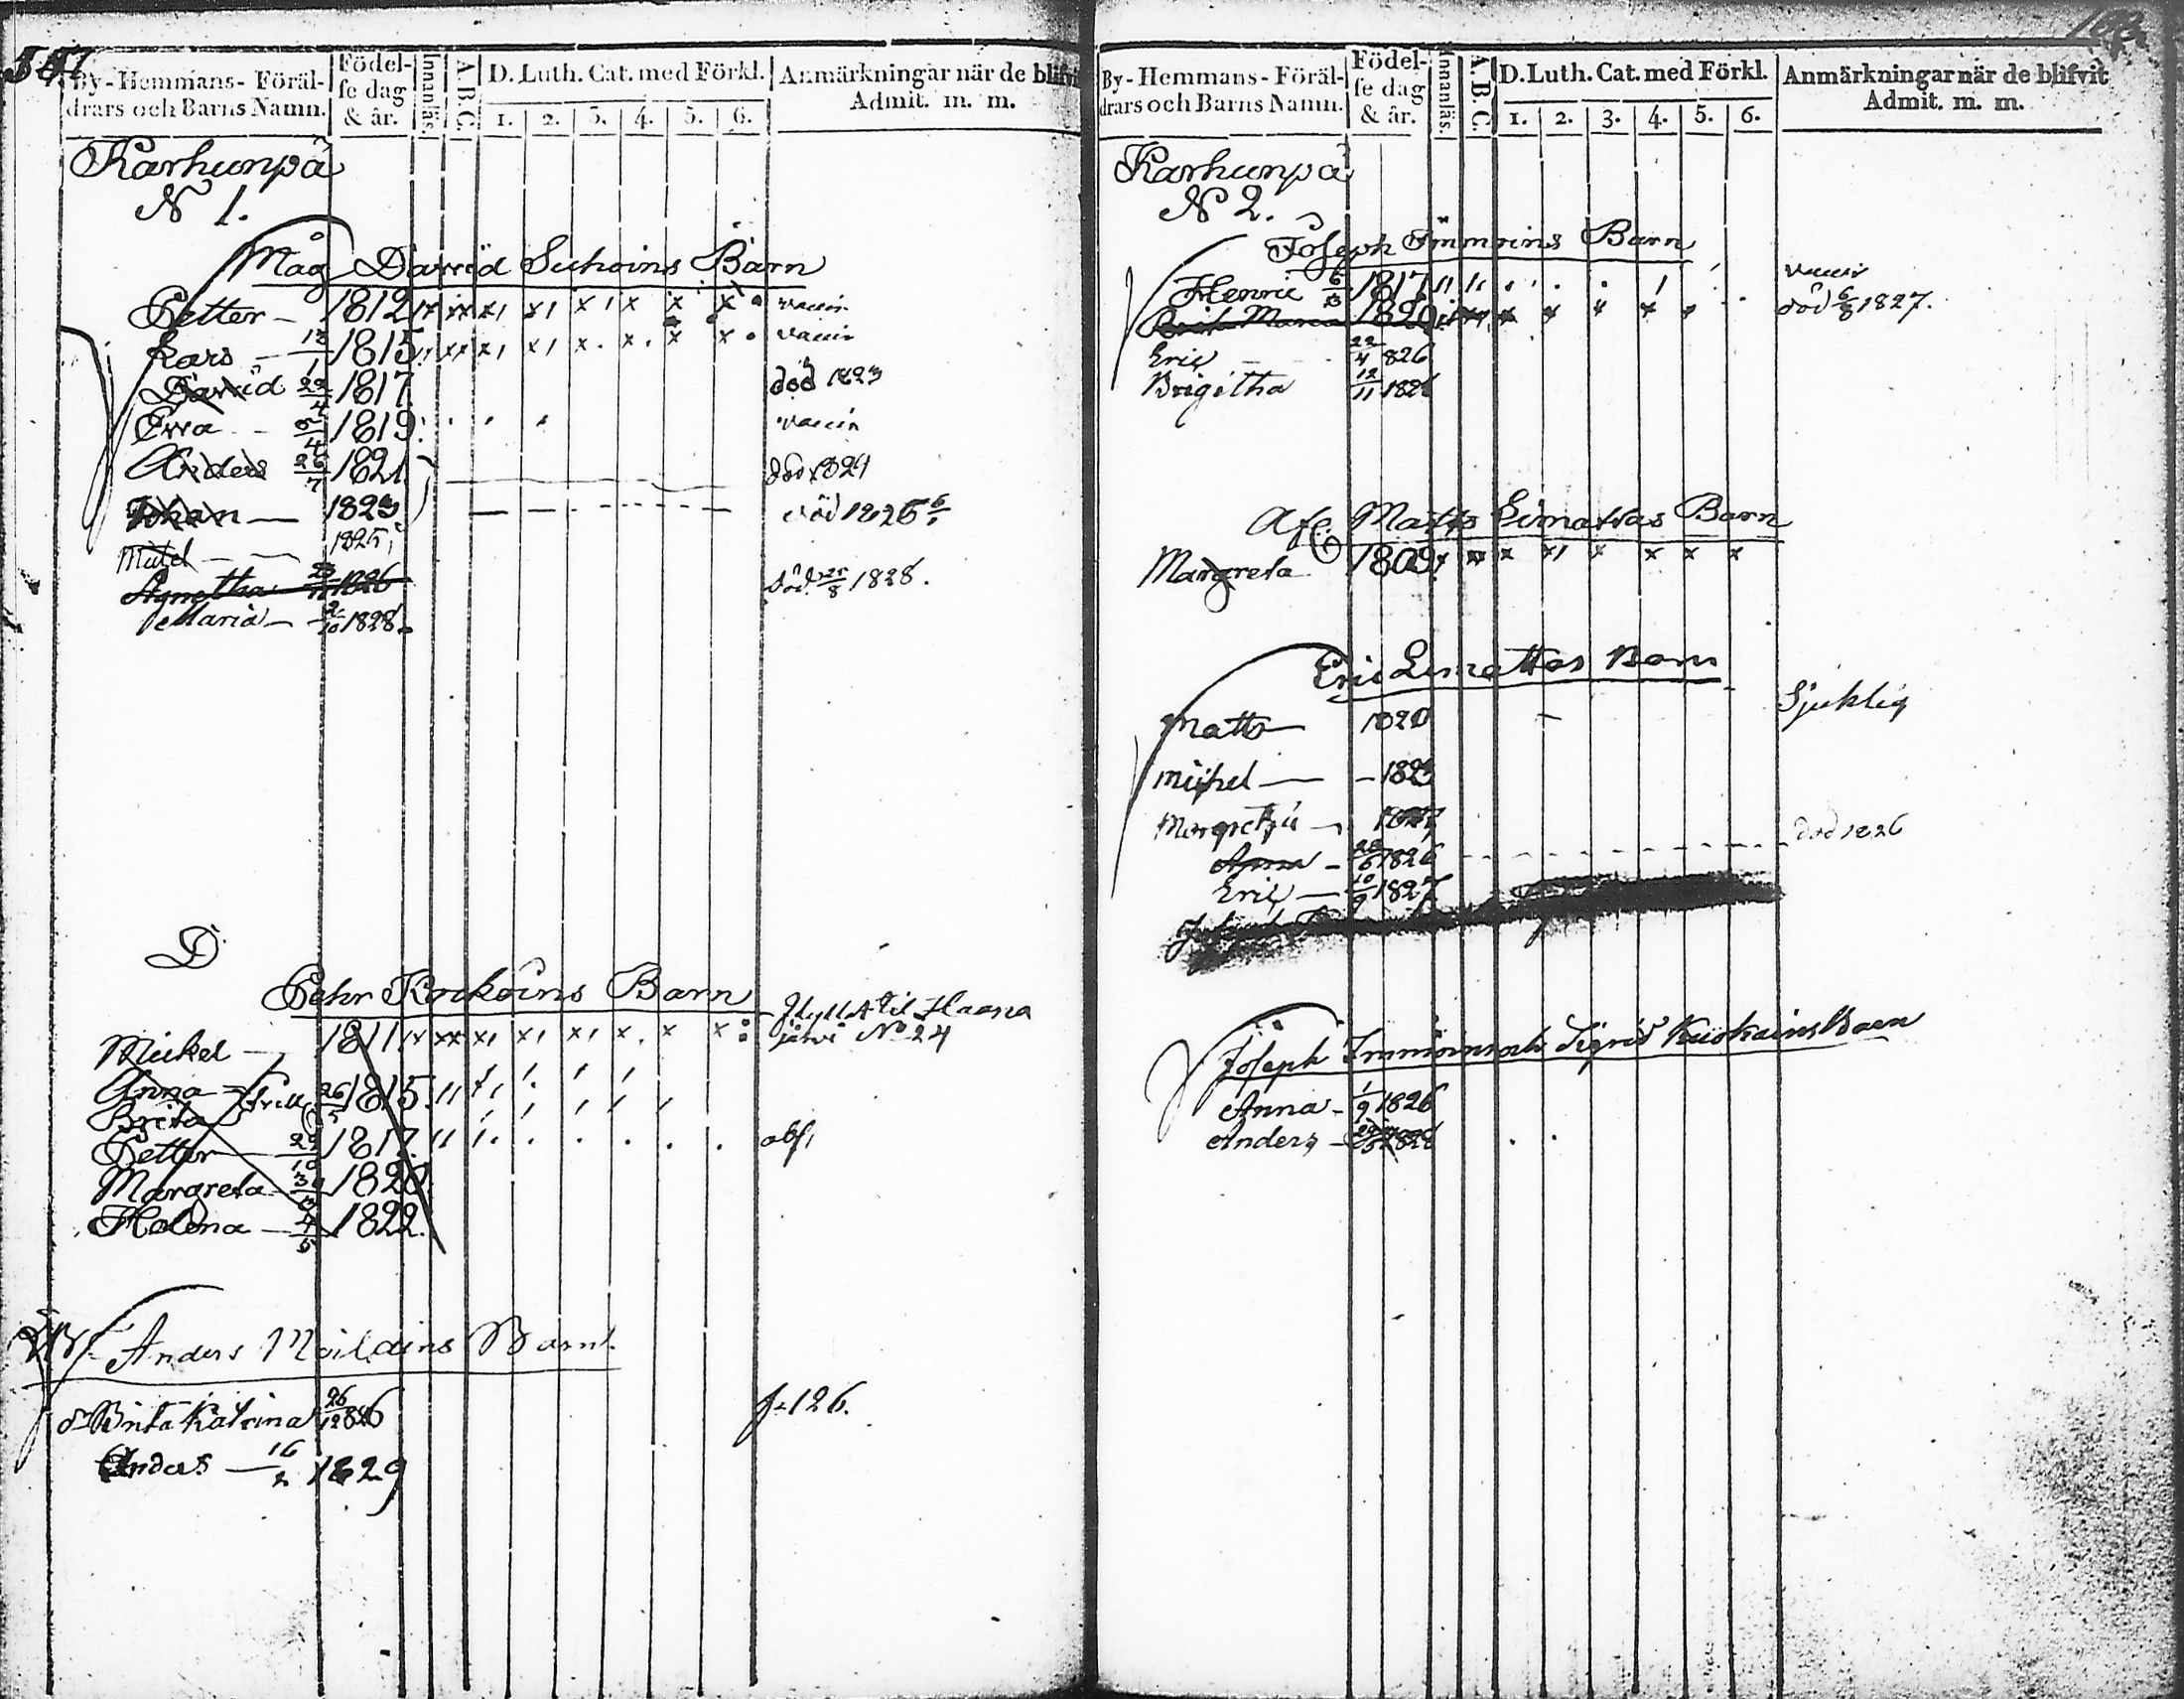 By-Hemmans-Föräl-
drars och Barns Namn.
Födel-
se dag
& år.
Innanläs.
A.B.C.
D. Luth. Cat. med Förkl.
1. 2. 3. 4. 5. 6.
Anmärkningar när de blifvit
Admit. m. m.
Karhunpä
N 1.
Måg David Suhoins Barn
Petter 1812 vaccin
Lars 13/1 1815 vaccin
David 22/4 1817 död 1823
Ewa 5/4 1819 vaccin
Anders 26/7 1821 död 1821
Johan 1823 död 1826
Matel 1825
Agnetha 1826 död 25/8 1828.
Maria 2/10 1828
D
Pehr Kockoins Barn
Flytt til Haana
järvi No 24
Mickel 1811
Anna
Brita 26/5 1815
Petter 29/10 1817 abs.
Margreta 1820
Helena 4/5 1822.
Anders Moilains Barn.
Brita Katrina 26/12 826 f. 126.
Anders 16/2 1829
By-Hemmans-Föräl-
drars och Barns Namn.
Födel-
se dag
& år.
Innanläs.
A.B.C.
D. Luth. Cat. med Förkl.
1. 2. 3. 4. 5. 6.
Anmärkningar när de blifvit
Admit. m. m.
Karhunpä
N 2.
Joseph Immoins Barn
Henric 1817 vaccin
Brita Maria 1820 död 6/8 1827.
Eric 22/4 826
Brigitha 12/11 1826
Afl. Matts Limattas Barn
Margreta 1809
Eric Limattas Barn
Matts 1820 Sjuklig
Michel 1823
Margreta
Anna 1826 död 1826
Eric 10/9 1827
Joseph Immoins och Sigrid Barn
Anna 1/9 1826
Anders